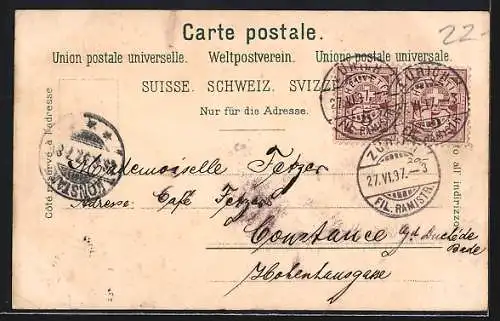 22-
Carte postale.
Union postale universelle. Weltpostverein. Unione postale universale.
SUISSE. SCHWEIZ. SVIZZ
Nur für die Adresse.
Côté réservé à l'adresse
to all indirizzo
ZÜRICH
27.VI.97.—3
FIL. RAMISTR.
KONSTANZ
Mademoiselle Fetzer
Adresse: Café Fetzer
Constance Duché de
Bade
Hohenhausgasse